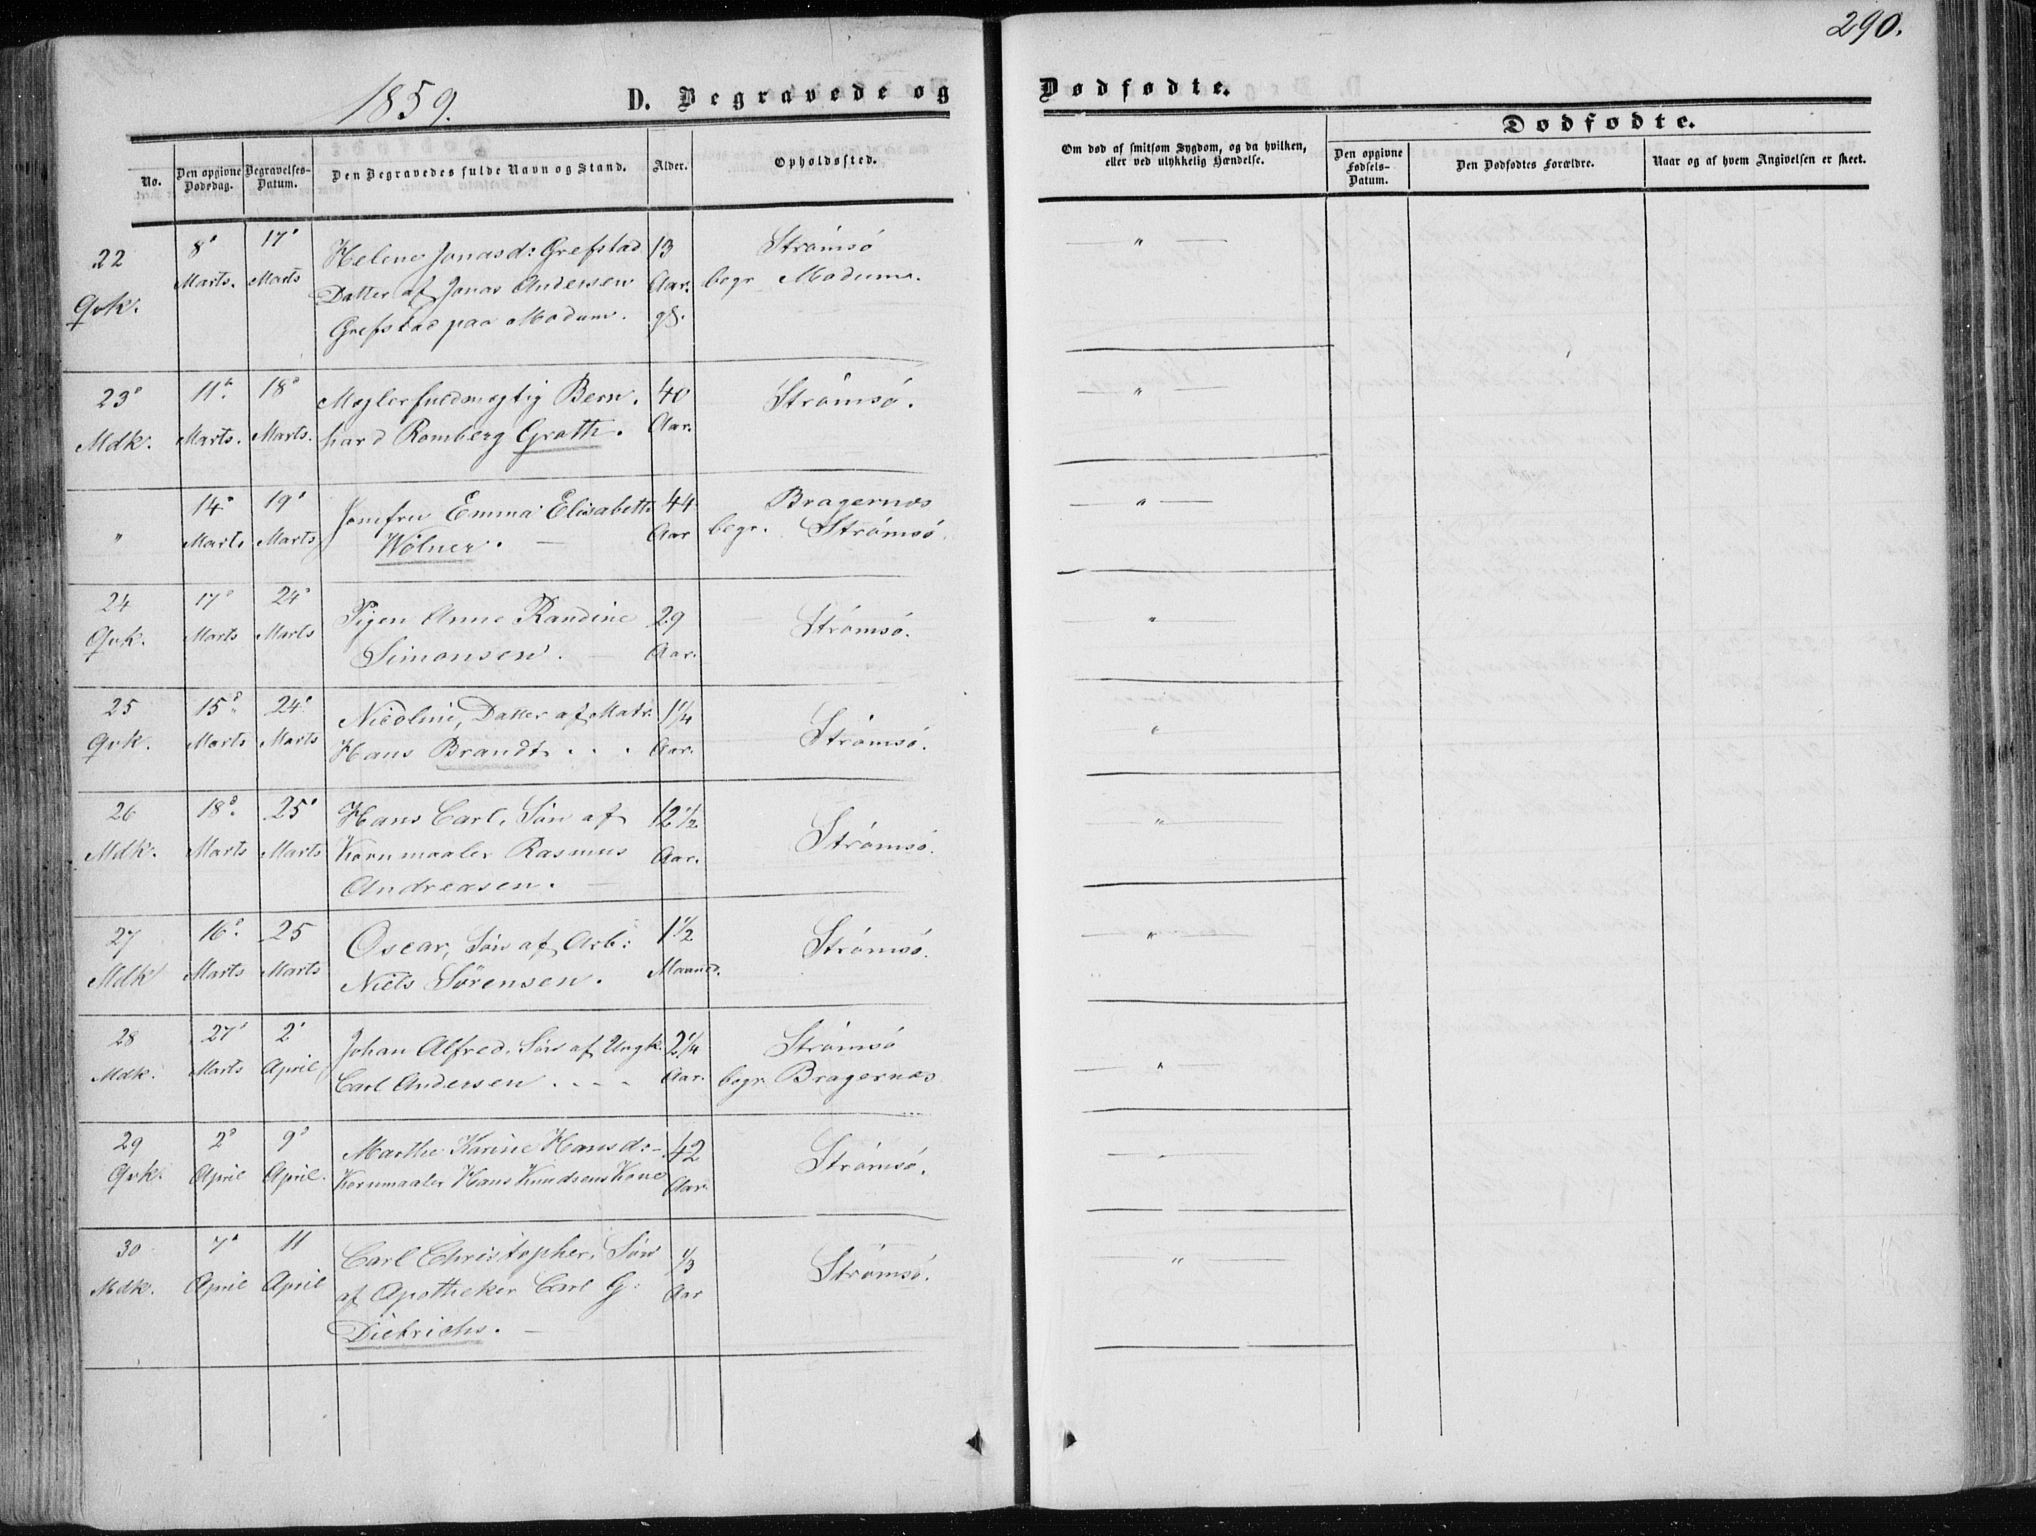 290.
1859.
D. Begravede og Dødfødte.
Dødfødte.
No.
Den opgivne Dødsdag.
Begravelses-Datum.
Den Begravedes fulde Navn og Stand.
Alder.
Opholdssted.
Om død af smitsom Sygdom, og da hvilken, eller ved ulykkelig Hændelse.
Den opgivne Fødsels-Datum.
Den Dødfødtes Forældre.
Naar og af hvem Angivelsen er skeet.
22 8' 17' Helene Jonasd: Grefstad 13 Strømsö "
Qvk. Marts. Marts Datter af Jonas Andersen Aar. begr Modum.
Grefstad paa Modum. gl.
23 11 18 Mæglerfuldmægtig Bern- 40 Strömsö. "
Mdk. Marts. Marts. hard Romberg Groth. Aar.
" 14 19' Jomfru Emma Elisabeth 44 Bragernæs "
Marts Marts Wölner. Aar begr. Strømsö.
24 17 24 Pigen Anne Randine 29 Strömsö. "
Qvk. Marts Marts Simonsen. Aar.
25 15 24' Nicoline, Datter af Matr. 1 1/4 Strømsö. "
Qvk. Marts Marts Hans Brandt. Aar.
26 18 25' Hans Carl, Sön af 12 1/2 Strømsö. "
Mdk. Marts Marts Kornmaaler Rasmus Aar.
Andreasen.
27 16 25 Oscar, Sön af Arb: 1 1/2 Strömsö. "
Mdk Marts Marts Niels Sörensen. Maaned.
28 27' 2' Johan Alfred, Sön af Ungk. 2 1/4 Strömsö "
Mdk. Marts April Carl Andersen Aar. begr. Bragernæs
29 2 9 Marthe Karine Hansd:- 42 Strömsö. "
Qvk. April April. Kornmaaler Hans Knudsens Kone Aar.
30 7 11 Carl Christopher, Sön 1/3 Strömsö. "
Mdk. April April af Apotheker Carl G: Aar
Dietrichs.